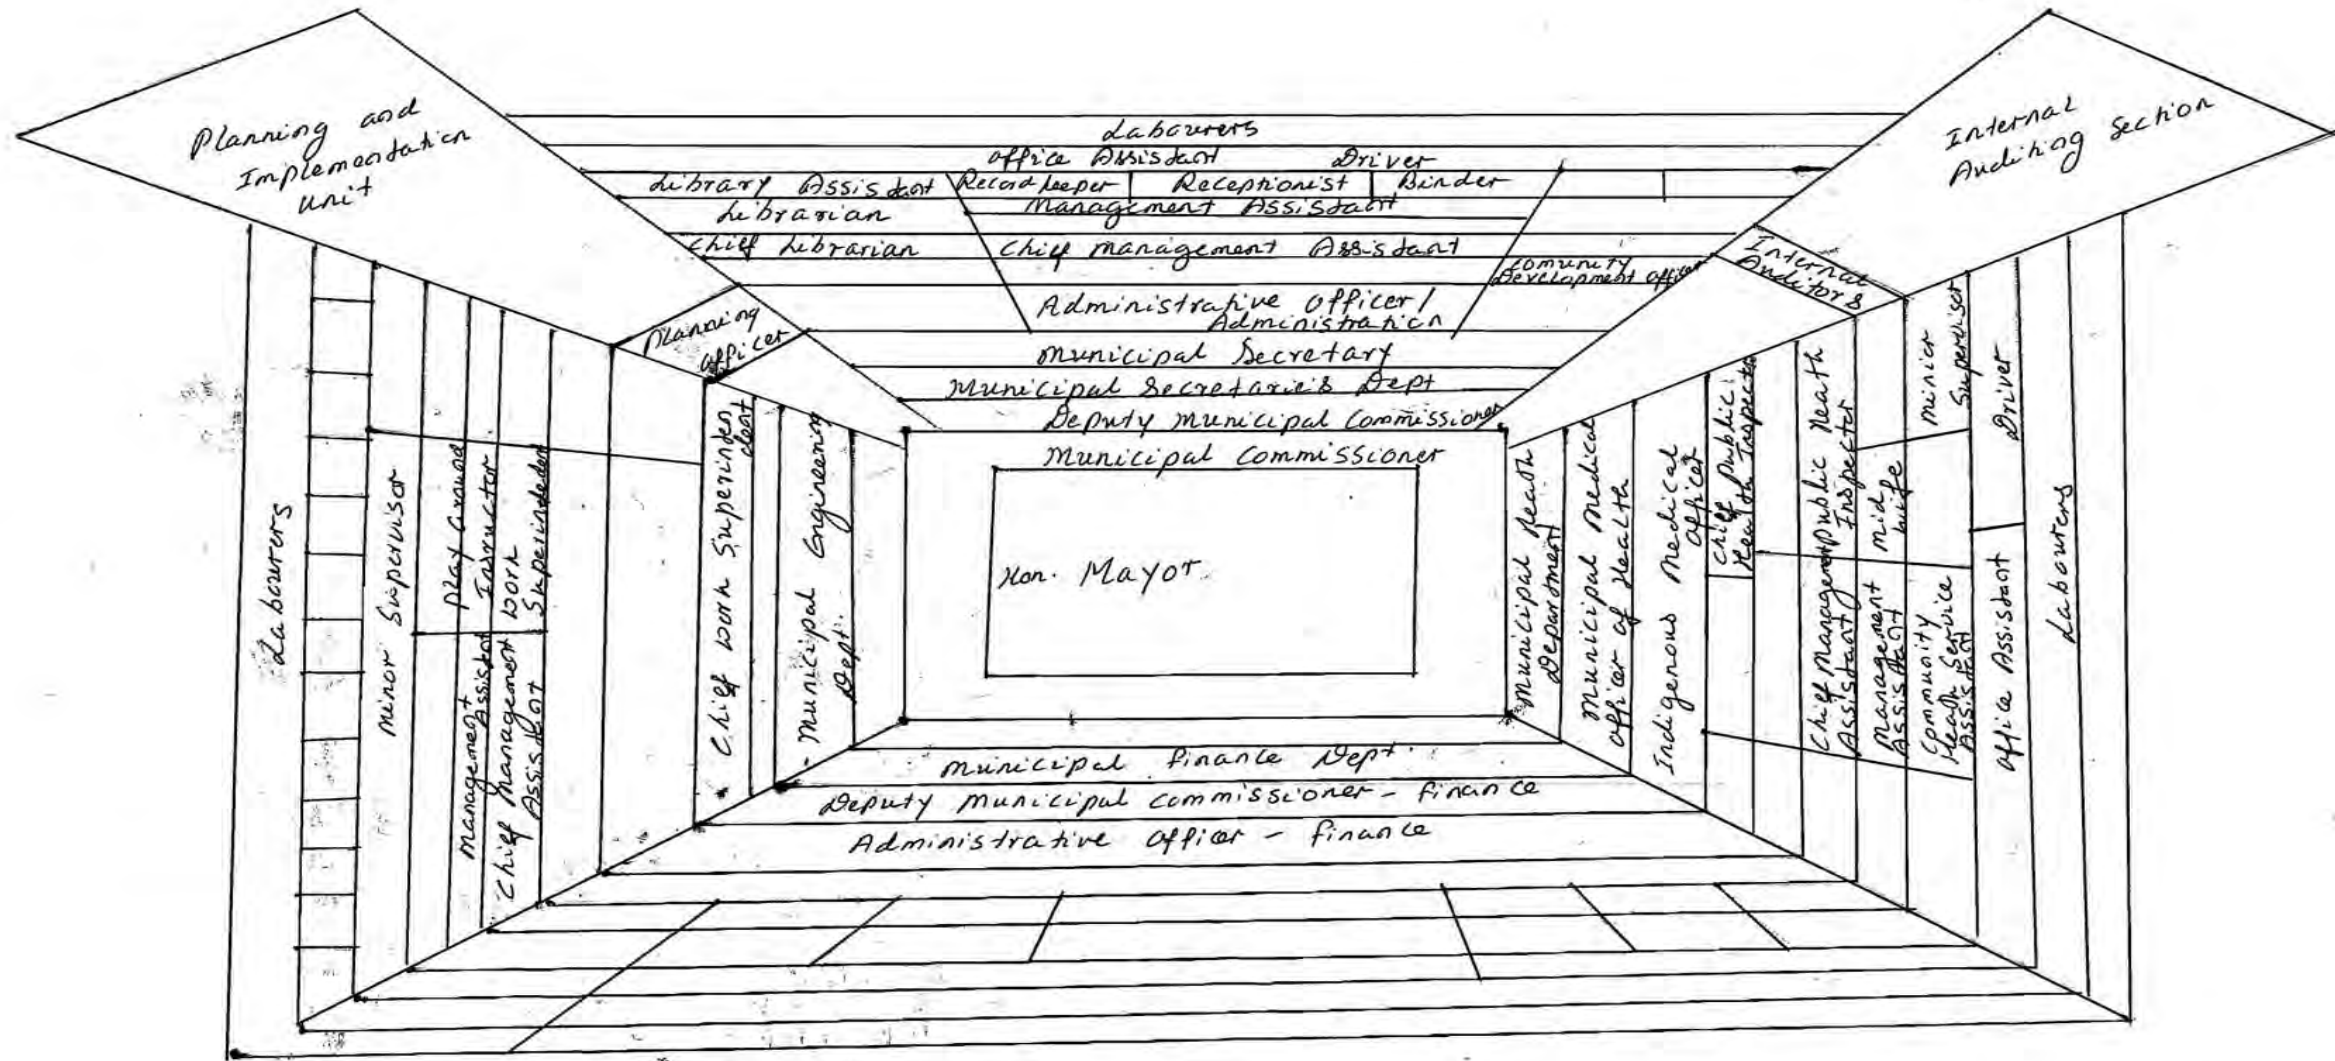 Planning and
Implementation
Unit
Internal
Auditing Section
Labourers
Office Assistant Driver
Library Assistant Record keeper Receptionist Binder
Librarian Management Assistant
Chief Librarian Chief Management Assistant
Comunity
Development Officer
Internal
Auditors
Planning
Officer
Administrative Officer/
Administration
Municipal Secretary
Municipal Secretarie's Dept
Deputy Municipal Commissioner
Municipal Commissioner
Hon. Mayor
Labourers
Minor Supervisor
Play Ground
Insructor
Work
Superindedent
Management
Assistant
Chief Management
Assistant
Chief Work Superinden
dent
Municipal Engineering
Dept.
Municipal Health
Department
Municipal Medical
Officer of Health
Indigenous Medical
Officer
Chief Public
Health Inspector
Public Health
Inspector
Chief Management
Assistant
Mid
wife
Management
Assistant
Minior
Superviser
Community
Health Service
Assistant
Driver
Office Assistant
Labourers
Municipal Finance Dept.
Deputy Municipal Commissioner - Finance
Administrative Officer - Finance